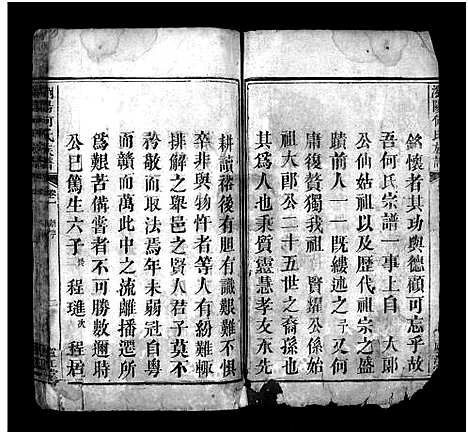 瀏陽何氏族譜
然懷者其功與德顧可忘乎故
吾何氏宗譜一事上自 大郎
公仙姑祖以及歷代祖宗之盛
蹟前人一一既縷述之予何
庸復贅獨我祖 賢耀公係始
祖大郎公二十五世之裔孫也
其為人也秉質靈慧孝友永先
耕讀裕後有胆有識艱難不惧
卒非與物忤者等人有紛難輒
排解之舉邑之賢人君子莫不
矜敬而取法焉年未弱冠自粵
而贛而萬此中之流離播遷所
為艱苦備嘗者不可勝數邇時
公巳篤生六子 程璡 次 程琚
瀏陽何氏族譜 卷一